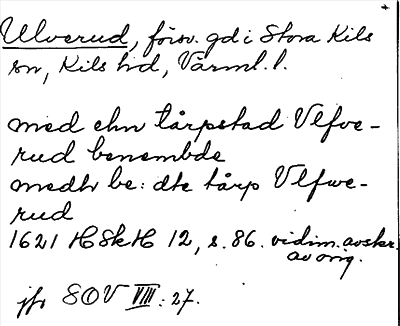 Ulverud, försv. gd i Stora Kils
sn, Kils hd, Värml. l.
med ehn tårpstad Vlfve-
rud benembde
medh be: dte tårp Vlfwe-
rud
1621 HSkH 12, s. 86. vidim. avskr.
av orig.
jfr SOV VIII: 27.